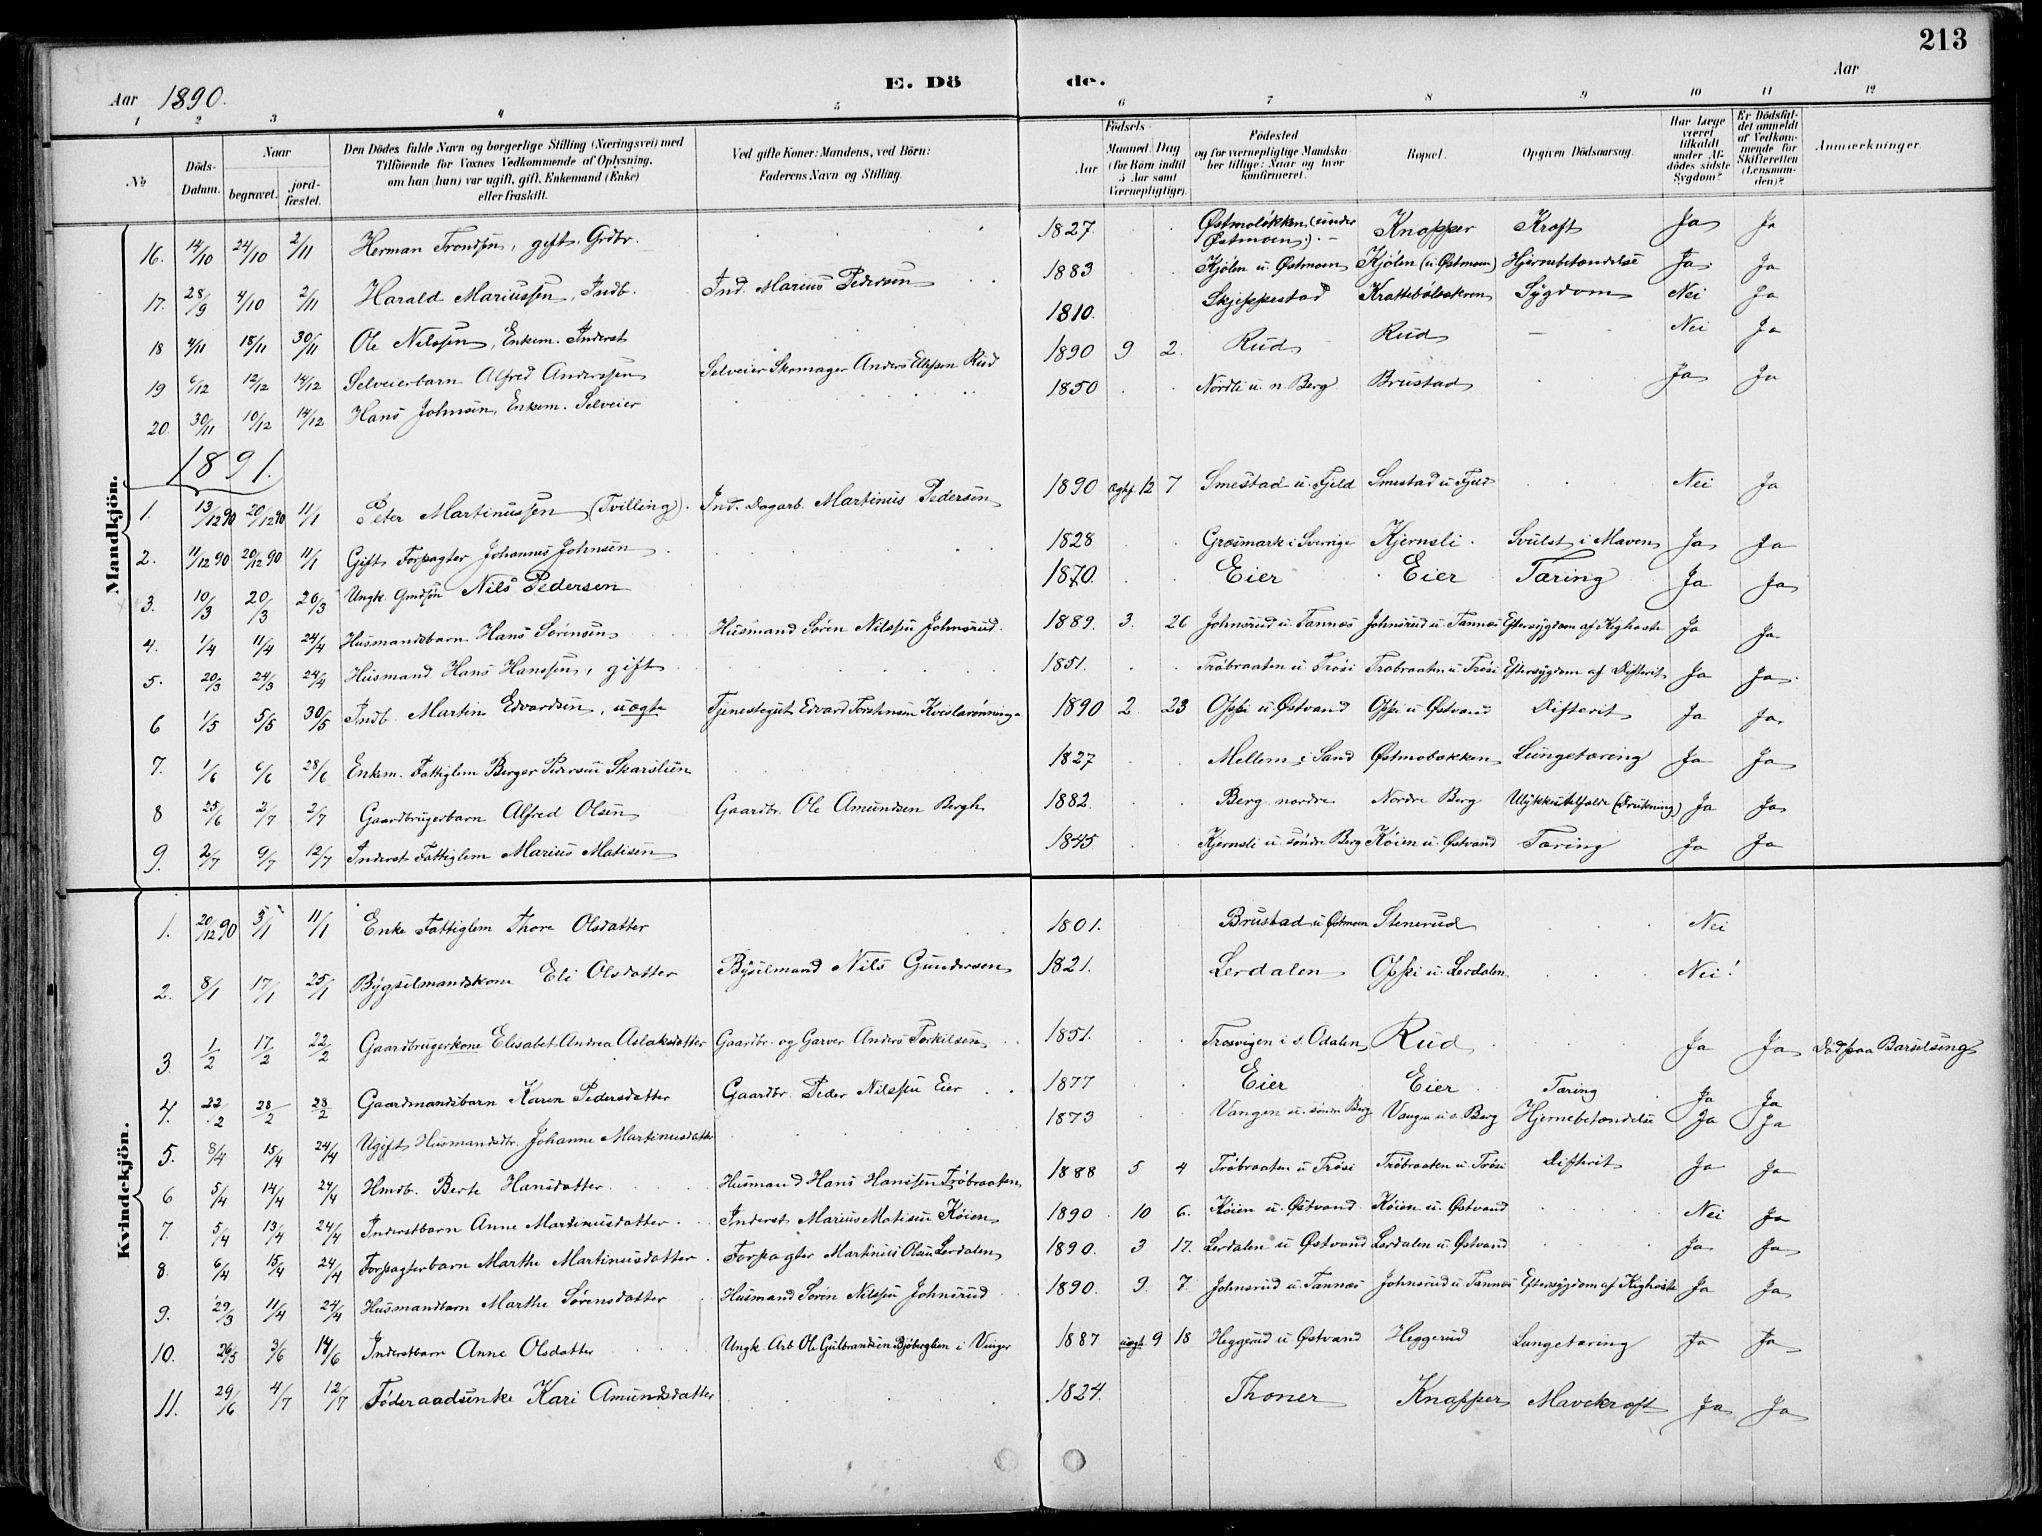 213
Aar 1890. E. Dö de. Aar
1 2 3 4 5 6 7 8 9 10 11 12
No
Döds-Datum.
Naar
begravet.
jord-fæstet.
Den Dödes fulde Navn og borgerlige Stilling (Næringsvei) med
Tilföiende for Voxnes Vedkommende af Oplysning,
om han (hun) var ugift, gift, Enkemand (Enke)
eller fraskilt.
Ved gifte Koner: Mandens, ved Börn:
Faderens Navn og Stilling.
Födsels-
Aar
Maaned. Dag
(for Börn indtil
5 Aar samt
Værnepligtige).
Födested
og for værnepligtige Mandska-
ber tillige: Naar og hvor
konfirmeret.
Bopæl.
Opgiven Dödsaarsag.
Har Læge
været
tilkaldt
under Af-
dödes sidste
Sygdom?
Er Dödsfal-
det anmeldt
af Vedkom-
mende for
Skifteretten
(Lensman-
den)?
Anmærkninger.
Mandkjön.
16. 14/10 24/10 2/11 Herman Trondsen, gift. Grdbr. 1827. Østmoløkken (under Østmoen). Knapper Kræft Ja Ja
17. 28/9 4/10 2/11 Harald Mariussen, Indb. Ind. Marius Pedersen 1883 Kjølen u. Østmoen Kjølen (u. Østmoen) Hjernebetændelse Ja Ja
18 4/11 18/11 30/11 Ole Nilssen, Enkem. Inderst 1810. Skjeppestad Krattebølsakeren Sygdom Nei Ja
19 6/12 12/12 14/12 Selveierbarn Alfred Anderssen Selveier Skomager Anders Ellefsen Rud 1890 9 2. Rud Rud – Nei Ja
20. 30/11 10/12 14/12 Hans Johnsen, Enkem. Selveier 1850 Nordli u. n. Berg Brustad Ja Ja
1891.
1. 13/12 90 20/12 90 11/1 Peter Martinussen (Tvilling). Ind. Dagarb. Martinus Pedersen 1890 12 7 Smestad u. Fjeld Smestad u. Fjeld Nei Ja
2. 11/12 90 20/12 90 11/1 Gift Forpagter Johannes Johnsen 1828 Græsmark i Sverige Kjernsli. Svulst i Maven Ja Ja
3. 10/3 20/3 26/3 Ungk. Grmdsøn Nils Pedersen 1870. Eier Eier Tæring Ja Ja
4. 1/4 11/4 24/4 Husmandsbarn Hans Sørensen Husmand Søren Nilssen Johnsrud. 1889. 3. 26 Johnsrud u. Tannæs Johnsrud u. Tannæs Eftersygdom af Kighoste Ja Ja
5. 20/3 24/3 24/4 Husmand Hans Hanssen, gift 1851. Trøbraaten u. Trøsi Trøbraaten u. Trøsi Eftersygdom af Difterit Ja Ja
6 1/5 5/5 30/5 Indb. Martin Edvardsen, uægte Tjenestegut Edvard Torstensen Kveslarønningen 1890 2. 23 Oppi u. Østvand Oppi u. Østvand Difterit Ja Ja
7. 1/6 6/6 28/6 Enkem. Fattiglem Berger Pedersen Skarslien 1827 Mellem i Sand Østmobakken Lungetæring Ja Ja
8 25/6 2/7 2/7 Gaardbrugerbarn Alfred Olsen Gaardbr. Ole Amundsen Bergh 1882. Berg nordre Nordre Berg Ulykkestilfælde (Drukning) Ja Ja
9. 2/7 9/7 12/7 Inderst Fattiglem Marius Matisen 1845 Kjernsli u. søndre Berg Køien u. Østvand Tæring Ja Ja
Kvindekjön.
1. 20/12 90 5/1 11/1 Enke Fattiglem Thore Olsdatter 1801. Brustad u. Østmoen Stenerud Nei
2. 8/1 17/1 25/1 Bygselmandskone Eli Olsdatter Byselmand Nils Gundersen 1821. Lerdalen Oppi u. Lerdalen Nei!
3 1/2 17/2 22/2 Gaardbrugerkone Elisabet Andrea Aslaksdatter Gaardbr. og Garver Anders Torkilsen 1851. Træsvigen i s. Odalen Rud Ja Ja Død paa Barselseng
4. 22/2 28/2 28/2 Gaardmandsbarn Karen Pedersdatter Gaardbr. Peder Nilssen Eier 1877 Eier Eier Tæring Ja Ja
5. 8/4 15/4 24/4 Ugift Husmandsdtr. Johanne Martinusdatter 1873 Vangen u. søndre Berg Vangen u. s. Berg Hjernebetændelse Ja Ja
6 5/4 14/4 24/4 Hmdb. Berte Hansdatter Husmand Hans Hanssen Trøbraaten 1888 5 4 Trøbraaten u. Trøsi Trøbraaten u. Trøsi Difterit Ja Ja
7. 5/4 13/4 24/4 Inderstbarn Anne Martinusdatter Inderst Marius Matisen Køien 1890 10 6. Køien u. Østvand Køien u. Østvand Nei Ja
8. 6/4 15/4 24/4 Forpagterbarn Marthe Martinusdatter Forpagter Martinus Olsen Lerdalen 1890. 3 17. Lerdalen u. Østvand Lerdalen u. Østvand Ja Ja
9. 29/3 11/4 24/4 Husmandbarn Marthe Sørensdatter Husmand Søren Nilssen Johnsrud 1890. 9. 7. Johnsrud u. Tannæs Johnsrud u. Tannæs Eftersygdom af Kighoste Ja Ja
10. 26/5 3/6 14/6 Inderstbarn Anne Olsdatter Ungk. Arb. Ole Gulbrandsen i Vinger 1887 uægt. 9 18 Heggerud u. Østvand Heggerud Lungetæring Ja Ja
11. 29/6 4/7 12/7 Føderaadsenke Kari Amundsdatter 1824. Thoner Knapper Mavekræft Ja Ja